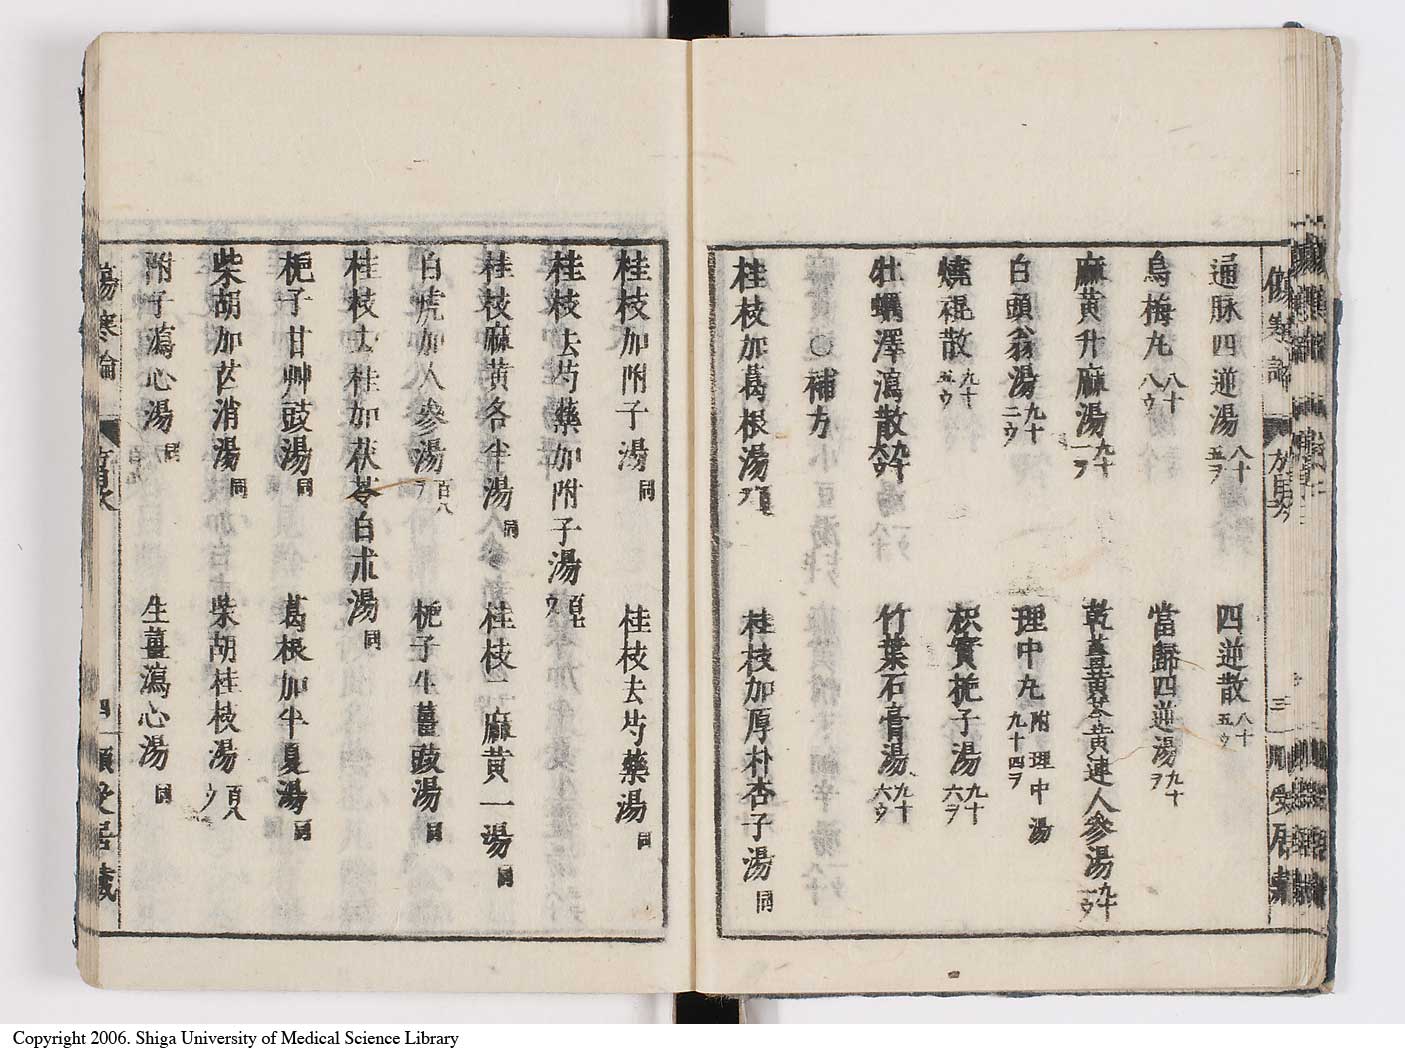 通脉四逆湯 八十五ヲ 四逆散 八十五ウ
烏梅丸 八十八ウ 當歸四逆湯 九十ヲ
麻黄升麻湯 九十一ヲ 乾薑黄芩黄連人參湯 九十一ウ
白頭翁湯 九十二ウ 理中丸 附理中湯 九十四ヲ
燒裩散 九十五ウ 枳實梔子湯 九十六ヲ
牡蠣澤瀉散 九十六ウ 竹葉石膏湯 九十六ウ
〇補方
桂枝加葛根湯 桂枝加厚朴杏子湯 同
桂枝加附子湯 同 桂枝去芍藥湯 同
桂枝去芍藥加附子湯 百七ウ
桂枝麻黄各半湯 同 桂枝二麻黄一湯 同
白虎加人參湯 百八ヲ 梔子生薑豉湯 同
桂枝去桂加茯苓白朮湯 同
梔子甘艸豉湯 同 葛根加半夏湯 同
柴胡加芒消湯 同 柴胡桂枝湯 百八ウ
附子瀉心湯 同 生薑瀉心湯 同
傷寒論